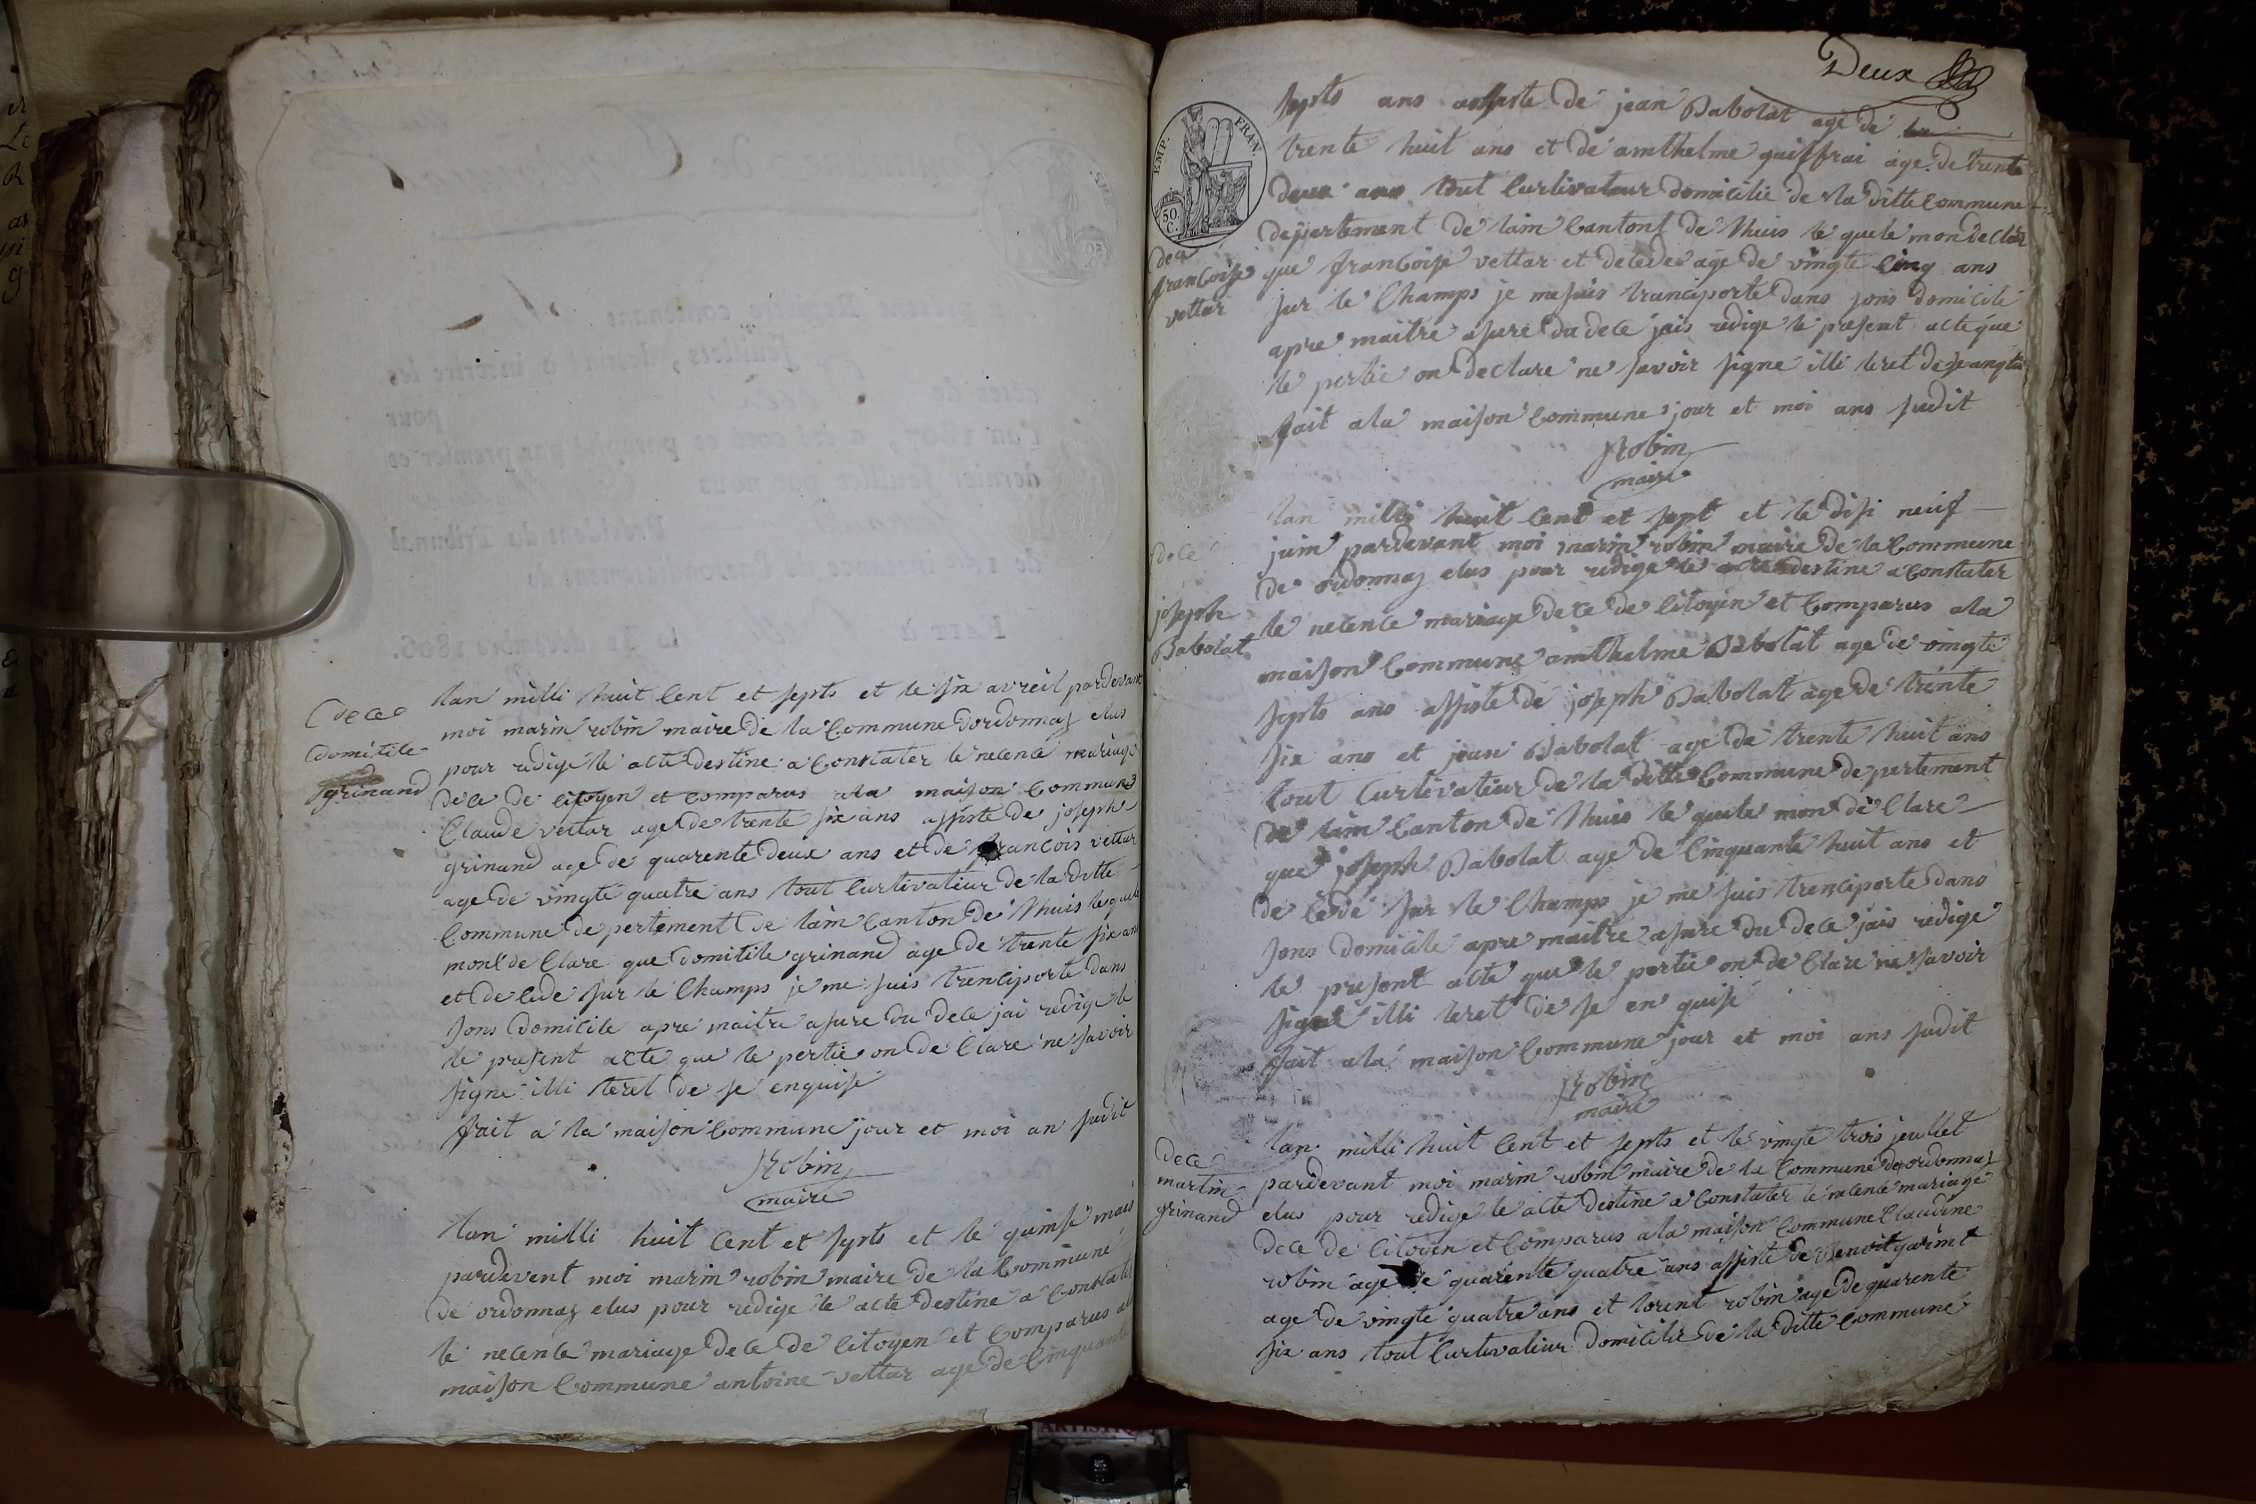 dece
domitile
grinand
lan milli huit Cent et septs et le six avreil pardevant
moi marin robin maire de la Commune dordonnaz elus
pour redige le acte destine a Constater le necence mariage
dece de citoyen et Comparus ala maison Commune
Claude vettar age de trente six ans assiste de joseph
grinand age de quarente deux ans et de francois vettar
age de vingte quatre ans tout Curtivateur de la ditte
Commune de pertement de lain Canton de lhuis le quele
mont de Clare que domitile grinand age de trente six ans
et de Cede sur le Champs je me suis trenciporte dans
sons domicile apre maitre asure du dece jai redige le
le present acte que le pertie on de Clare ne savoir
signe illi leret de se enquise
fait a la maison Commune jour et moi an sudit
Robin
maire
lan milli huit Cent et septs et le quinse mais
pardevent moi marin robin maire de la Commune
de ordonnaz elus pour redige le acte destine a Constater
le necence mariage dece de Citoyen et Comparus ala
maison Commune antoine vettar age de Cinquante
Deux
EMP. FRAN.
50.
C.
dece
francoise
vettar
septs ans assiste de jean Dabolat age de
trente huit ans et de amthelme guiffrai age de trente
deux ans tout Curtivateur domicilie de la ditte Commune
departement de lain Cantont de lhuis le quele mon declare
que francoise vettar et decedee age de vingte Cinq ans
sur le Champs je me suis tranciporte dans sons domicile
apre maitre asure du dece jais redige le present acte que
le pertie on declare ne savoir signe illi leret de se
fait ala maison Commune jour et moi ans sudit
Robin
maire
dece
joseph
Dabolat
lan milli huit Cent et sept et le disi neuf
juin pardevant moi marin robin maire de la Commune
de ordonnaz elus pour redige le acte destine a Constater
le necence mariage dece de Citoyen et Comparus ala
maison Commune amthelme Dabolat age de vingte
septs ans assiste de joseph Dabolat age de trente
six ans et jean Dabolat age de trente huit ans
tout Curtivateur de la ditte Commune de pertement
de lain Canton de lhuis le quele mon de Clare
que joseph Dabolat age de Cinquante huit ans et
de Cede sur le Champs je me suis trenciporte dans
sons domicile apre maitre asure du dece jais redige
le present acte que le pertie on de Clare ne savoir
signe illi leret de se en quise
fait ala maison Commune jour et moi ans sudit
Robin
maire
dece
martin
grinand
lan milli huit Cent et septs et le vingte trois jeulliet
pardevant moi marin robin maire de la Commune de ordonnaz
elus pour redige le acte destine a Constater le necence mariage
dece de Citoyen et Comparus ala maison Commune Claudine
robin age de quarente quatre ans assiste de Benoit garint
age de vingte quatre ans et lorent robin age de quarente
six ans tout Curtivatieur domicilie de la ditte Commune